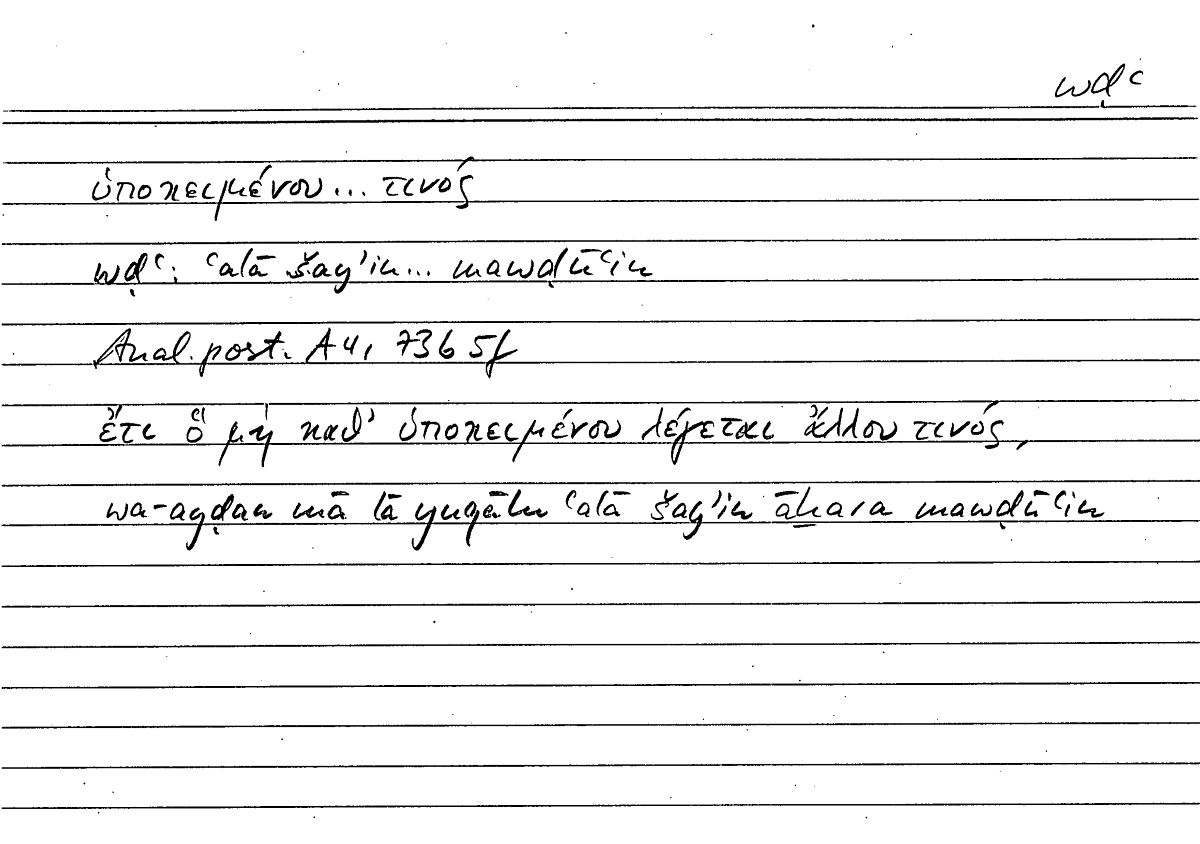 wḍʿ
ὑποκειμένου... τινός
wḍʿ: ʿalā šayʾin... mawḍūʿin
Anal. post. A 4, 73b 5f
ἔτι ὃ μὴ καθ' ὑποκειμένου λέγεται ἄλλου τινός,
wa-ayḍan mā lā yuqālu ʿalā šayʾin āḫara mawḍūʿin